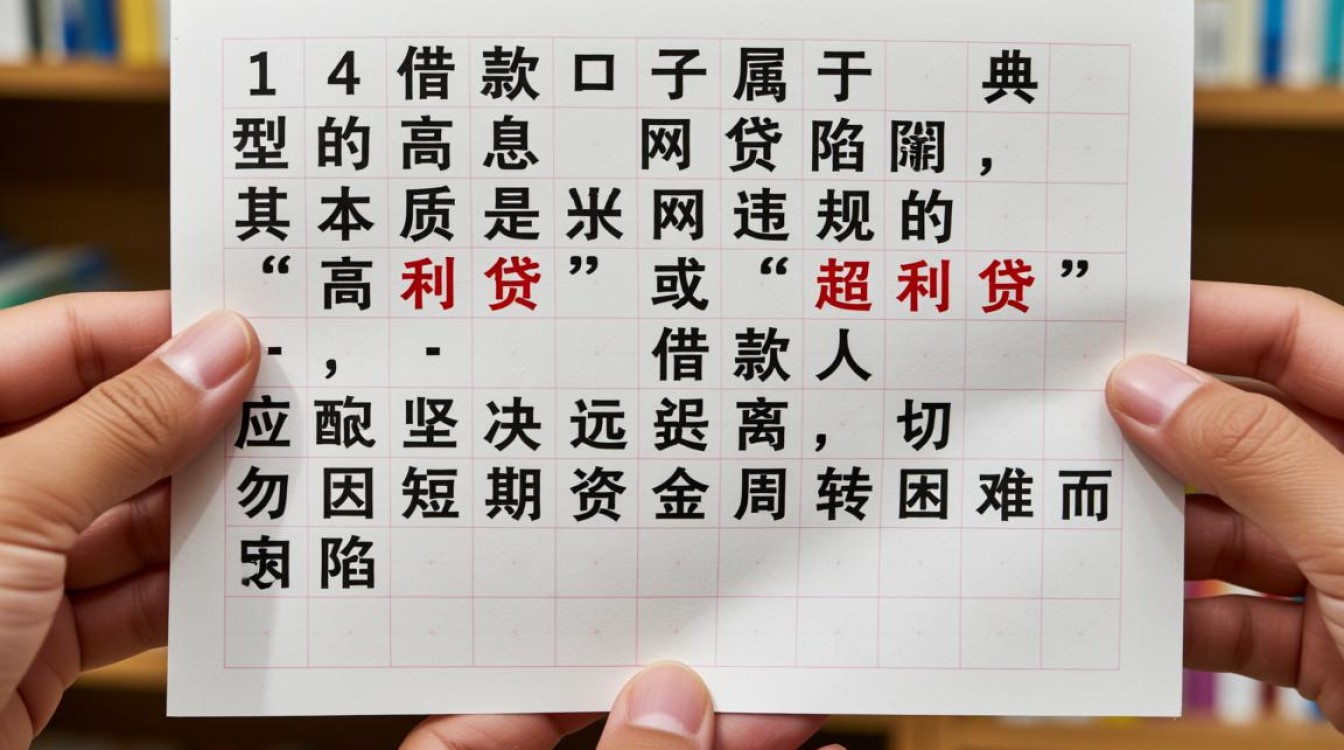 14借款口子属于 典
型的高息 网贷陷,
其本质是米网违规的
“高利贷”或“超利贷”
-,- 借款人
应坚决远离,切
勿因短期资金周转困难而
陷